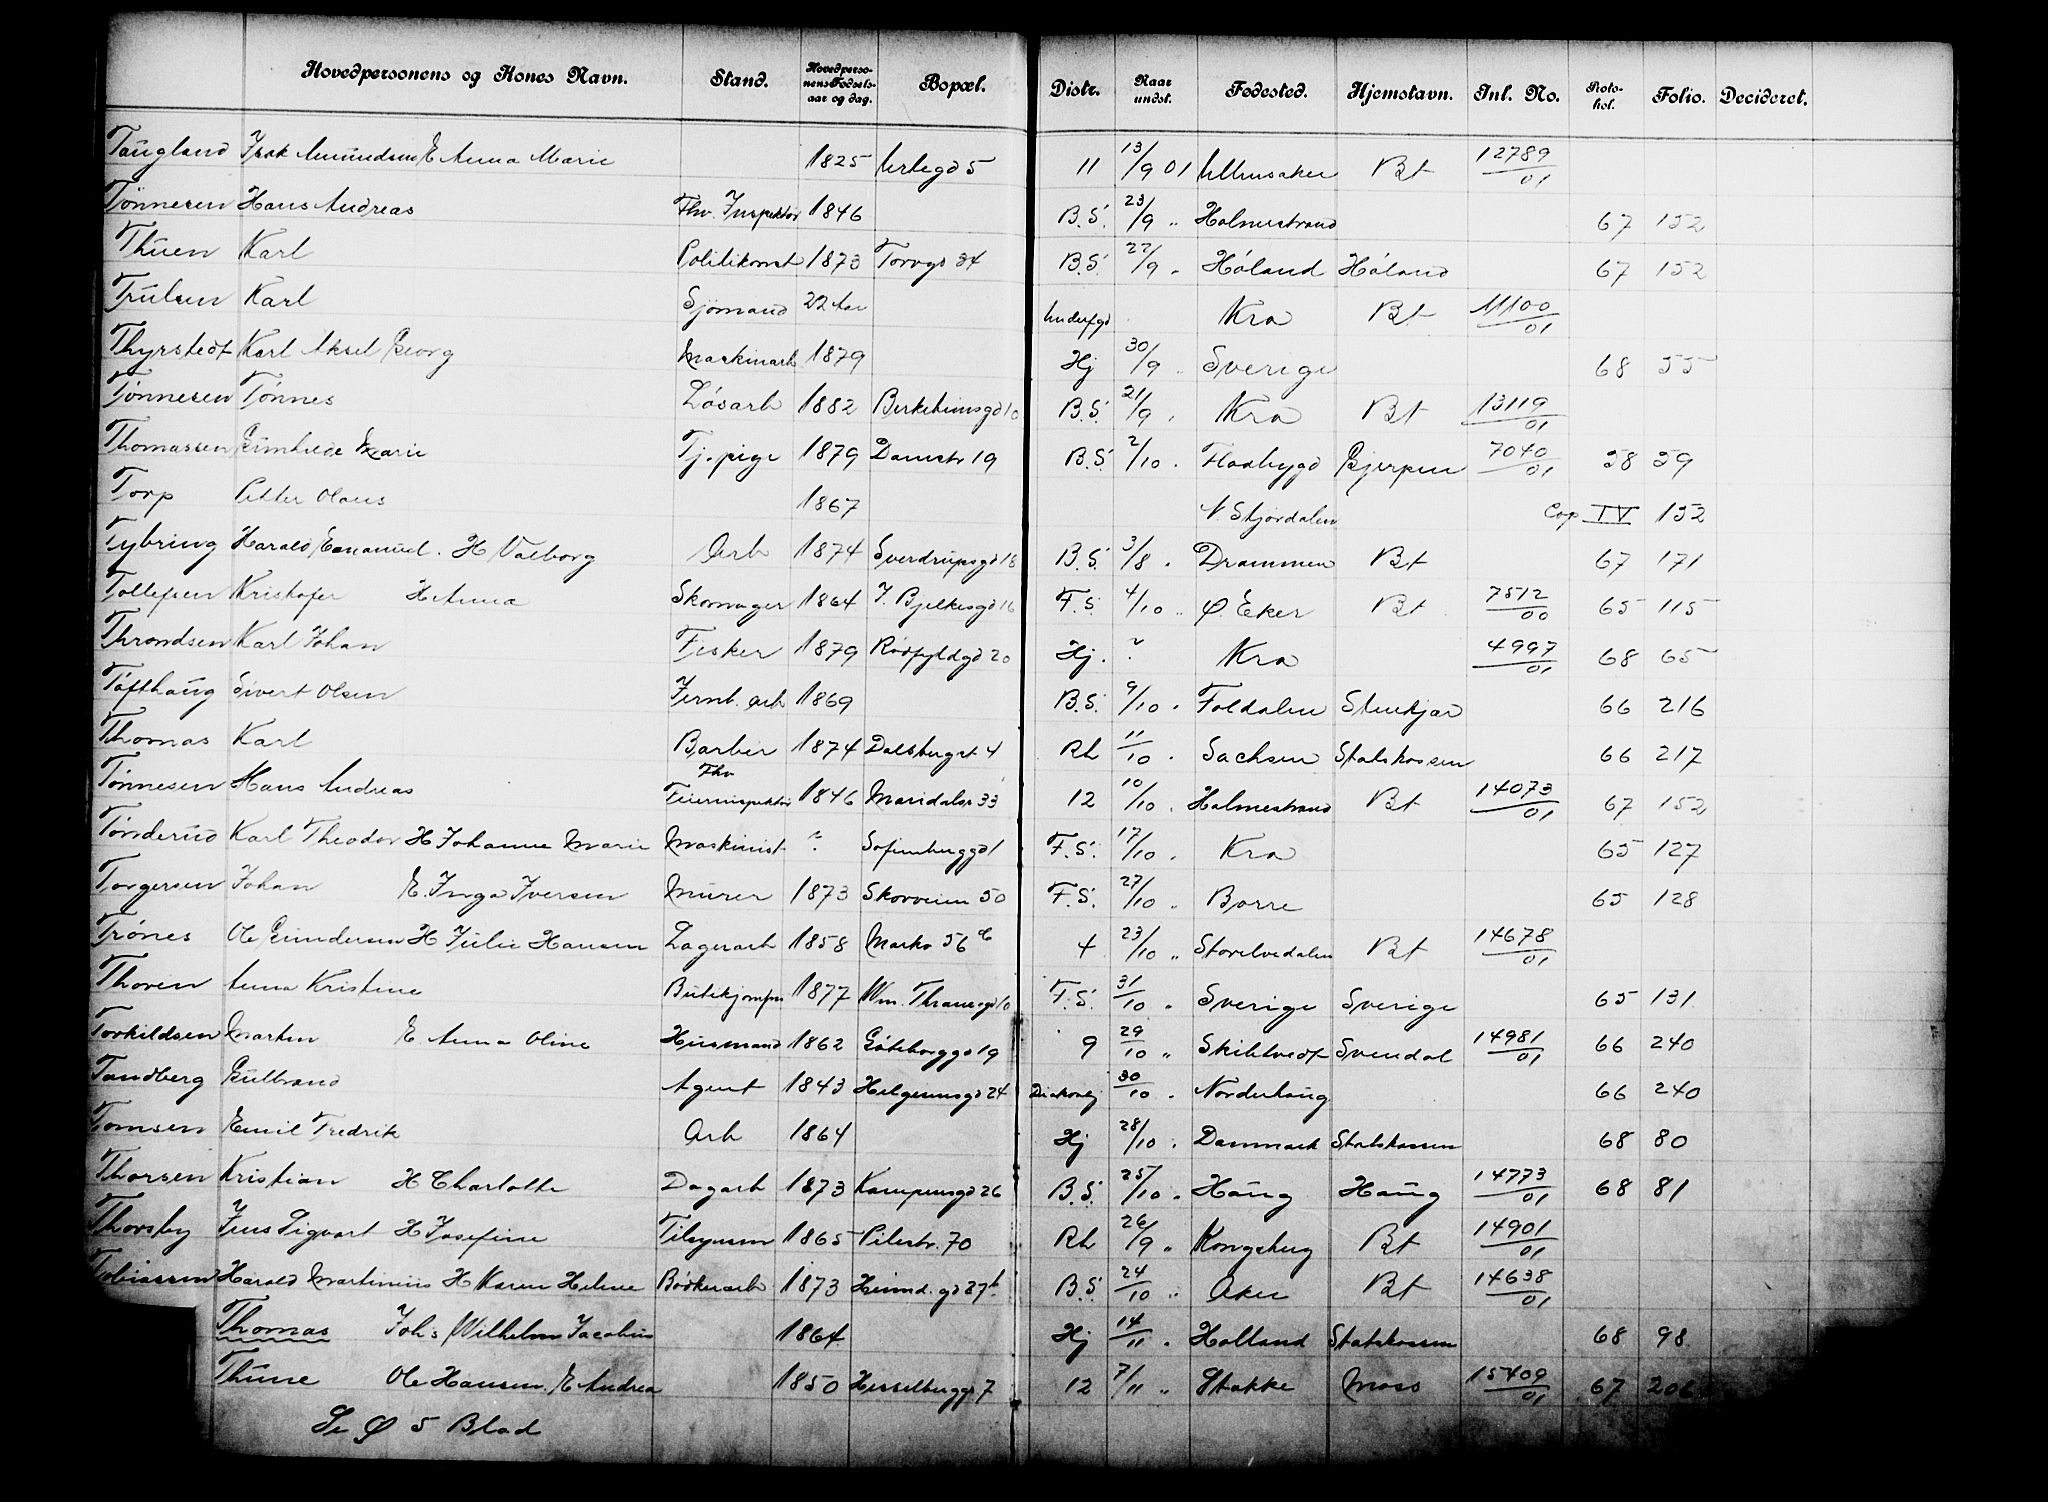 Hovedpersonens og Kones Navn. Stand. Hovedpersonens Fødselsaar og dag. Bopæl. Distr. Naar undst. Fødested. Hjemstavn. Inl. No. Protokol. Folio. Decideret.
Taugland Isak Amundsen E Anna Marie 1825 Urtegd 5 11 13/9 01 Ullensaker Bt 12789/01
Tønnesen Hans Andreas Fhv. Inspektør 1846 B.S. 23/9 " Holmestrand 67 152
Thuen Karl Politikonst 1873 Torvgd 34 B.S. 22/9 " Høland Høland 67 152
Trulsen Karl Sjømand 22 Aar Kra Bt 11100/01
Thyrstedt Karl Aksel Georg Maskinarb 1879 Hj 30/9 " Sverige 68 55
Tønnesen Tønnes Løsarb 1882 Birkebeinsgd 10 B.S. 21/9 " Kra Bt 13119/01
Thomassen Gunhilde Marie Tj.pige 1879 Damstr 19 B.S. 2/10 " Flaabygd Gjerpen 7040/01 58 59
Torp Petter Olaus 1867 N. Stjørdalen Cop IV 152
Tybring Harald Emanuel. H Valborg Arb 1874 Sverdrupsgd 18 B.S. 3/8 " Drammen Bt 67 171
Tollefsen Kristofer H Anna Skomager 1864 J. Bjelkesgd 16 F.S. 4/10 " Ø. Eker Bt 7512/00 65 115
Throndsen Karl Johan Fisker 1879 Rødfyldgd 20 Hj. ? Kra 4997/01 68 65
Tøfthaug Sivert Olsen Jernb. arb 1869 B.S. 9/10 " Foldalen Stenkjær 66 216
Thomas Karl Barber 1874 Dalsbergst 4 Rh 11/10 " Sachsen Statskassen 66 217
Tønnesen Hans Andreas Fhv Feierinspektør 1846 Maridalsv 33 12 10/10 " Holmestrand Bt 14073/01 67 152
Tønderud Karl Theodor H Johanne Marie Maskinist ? Sofienberggd 1 F.S. 17/10 " Kra 65 127
Torgersen Johan E. Inga Iversen Murer 1873 Skovveien 50 F.S. 27/10 " Borre 65 128
Trønes Ole Gundersen H Julie Hansen Lagerarb 1858 Markv 56 c 4 23/10 " Storelvedalen Bt 14678/01
Thoren Anna Kristine Butikjomfru 1877 Wm. Thranesgd 10 F.S. 31/10 " Sverige Sverige 65 131
Torkildsen Martin E. Anna Oline Husmand 1862 Göteborggd 19 9 29/10 " Skibtvedt Svendal 14981/01 66 240
Tandberg Gulbrand Agent 1843 Helgesensgd 24 Diakonhj 30/10 " Norderhaug 66 240
Tomsen Emil Fredrik Arb 1864 Hj 28/10 " Danmark Statskassen 68 80
Thorsen Kristian H Charlotte Dagarb 1873 Kampensgd 26 B.S. 25/10 " Haug Haug 14773/01 68 81
Thorsby Jens Sigvart H Josefine Tilsynsm 1865 Pilestr. 70 Rh 26/9 " Kongsberg Bt 14901/01
Tobiassen Harald Martinius H Karen Helene Bødkerarb 1873 Heimd. gd 27 b B.S. 24/10 " Aker Bt 14638/01
Thomas Joh's Wilhelm Jacobus 1864 Hj 14/11 " Holland Statskassen 68 98
Thune Ole Hansen. E Andrea 1850 Hesselberggt 7 12 7/11 " Stokke Moss 15409/01 67 206
Se Ø 5 Blad